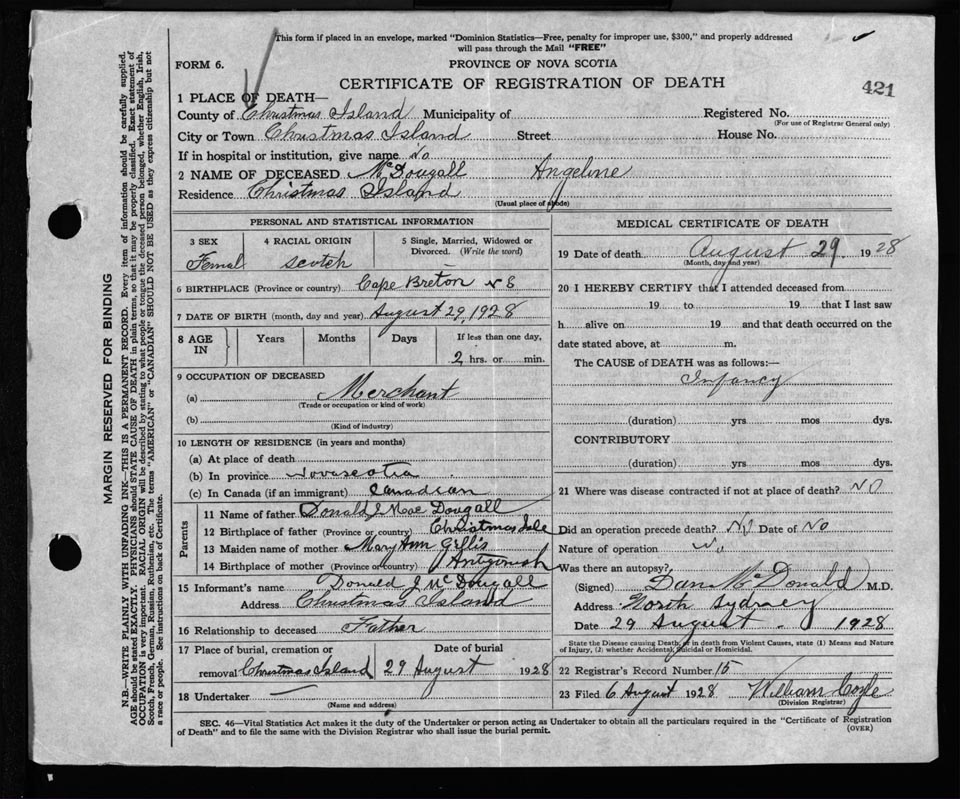 This form if placed in an envelope, marked "Dominion Statistics—Free, penalty for improper use, $300," and properly addressed
will pass through the Mail "FREE"
FORM 6.
PROVINCE OF NOVA SCOTIA
CERTIFICATE OF REGISTRATION OF DEATH
421
1 PLACE OF DEATH—
County of Christmas Island Municipality of Registered No.
(For use of Registrar General only)
City or Town Christmas Island Street House No.
If in hospital or institution, give name No
2 NAME OF DECEASED McDougall Angeline
Residence Christmas Island
(Usual place of abode)
PERSONAL AND STATISTICAL INFORMATION
3 SEX 4 RACIAL ORIGIN 5 Single, Married, Widowed or
Divorced. (Write the word)
Femal Scotch —
6 BIRTHPLACE (Province or country) Cape Breton N S
7 DATE OF BIRTH (month, day and year) August 29, 1928
8 AGE IN Years Months Days If less than one day,
2 hrs. or min.
9 OCCUPATION OF DECEASED
(a) Merchant
(Trade or occupation or kind of work)
(b)
(Kind of industry)
10 LENGTH OF RESIDENCE (in years and months)
(a) At place of death
(b) In province Novascotia
(c) In Canada (if an immigrant) Canadian
Parents
11 Name of father Donald J Mac Dougall
12 Birthplace of father (Province or country) Christmas Isle
13 Maiden name of mother Mary Ann Gillis
14 Birthplace of mother (Province or country) Antigonish
15 Informant's name Donald J McDougall
Address Christmas Island
16 Relationship to deceased Father
17 Place of burial, cremation or Date of burial
removal Christmas Island 29 August 1928
18 Undertaker —
(Name and address)
MEDICAL CERTIFICATE OF DEATH
19 Date of death August 29. 1928
(Month, day and year)
20 I HEREBY CERTIFY that I attended deceased from
19 to 19 that I last saw
h alive on 19 and that death occurred on the
date stated above, at m.
The CAUSE of DEATH was as follows:—
Infancy
(duration) yrs mos dys.
CONTRIBUTORY
(duration) yrs mos dys.
21 Where was disease contracted if not at place of death? NO
Did an operation precede death? NO Date of No
Nature of operation No
Was there an autopsy?
(Signed) Dan McDonald M.D.
Address North Sydney
Date 29 August 1928
State the Disease causing Death, or in death from Violent Causes, state (1) Means and Nature
of Injury, (2) whether Accidental, Suicidal or Homicidal.
22 Registrar's Record Number 15
23 Filed 6 August 1928 William Coyle
(Division Registrar)
SEC. 46—Vital Statistics Act makes it the duty of the Undertaker or person acting as Undertaker to obtain all the particulars required in the "Certificate of Registration
of Death" and to file the same with the Division Registrar who shall issue the burial permit.
(OVER)
MARGIN RESERVED FOR BINDING
N.B.—WRITE PLAINLY WITH UNFADING INK—THIS IS A PERMANENT RECORD. Every item of information should be carefully supplied.
AGE should be stated EXACTLY. PHYSICIANS should STATE CAUSE OF DEATH in plain terms, so that it may be properly classified. Exact statement of
OCCUPATION is very important. RACIAL ORIGIN will be described by stating to what people or tongue the deceased person belonged, whether English, Irish,
Scotch, French, German, Russian, Ruthenian, etc. The terms "AMERICAN" or "CANADIAN" SHOULD NOT BE USED as they express citizenship but not
a race or people. See instructions on back of Certificate.